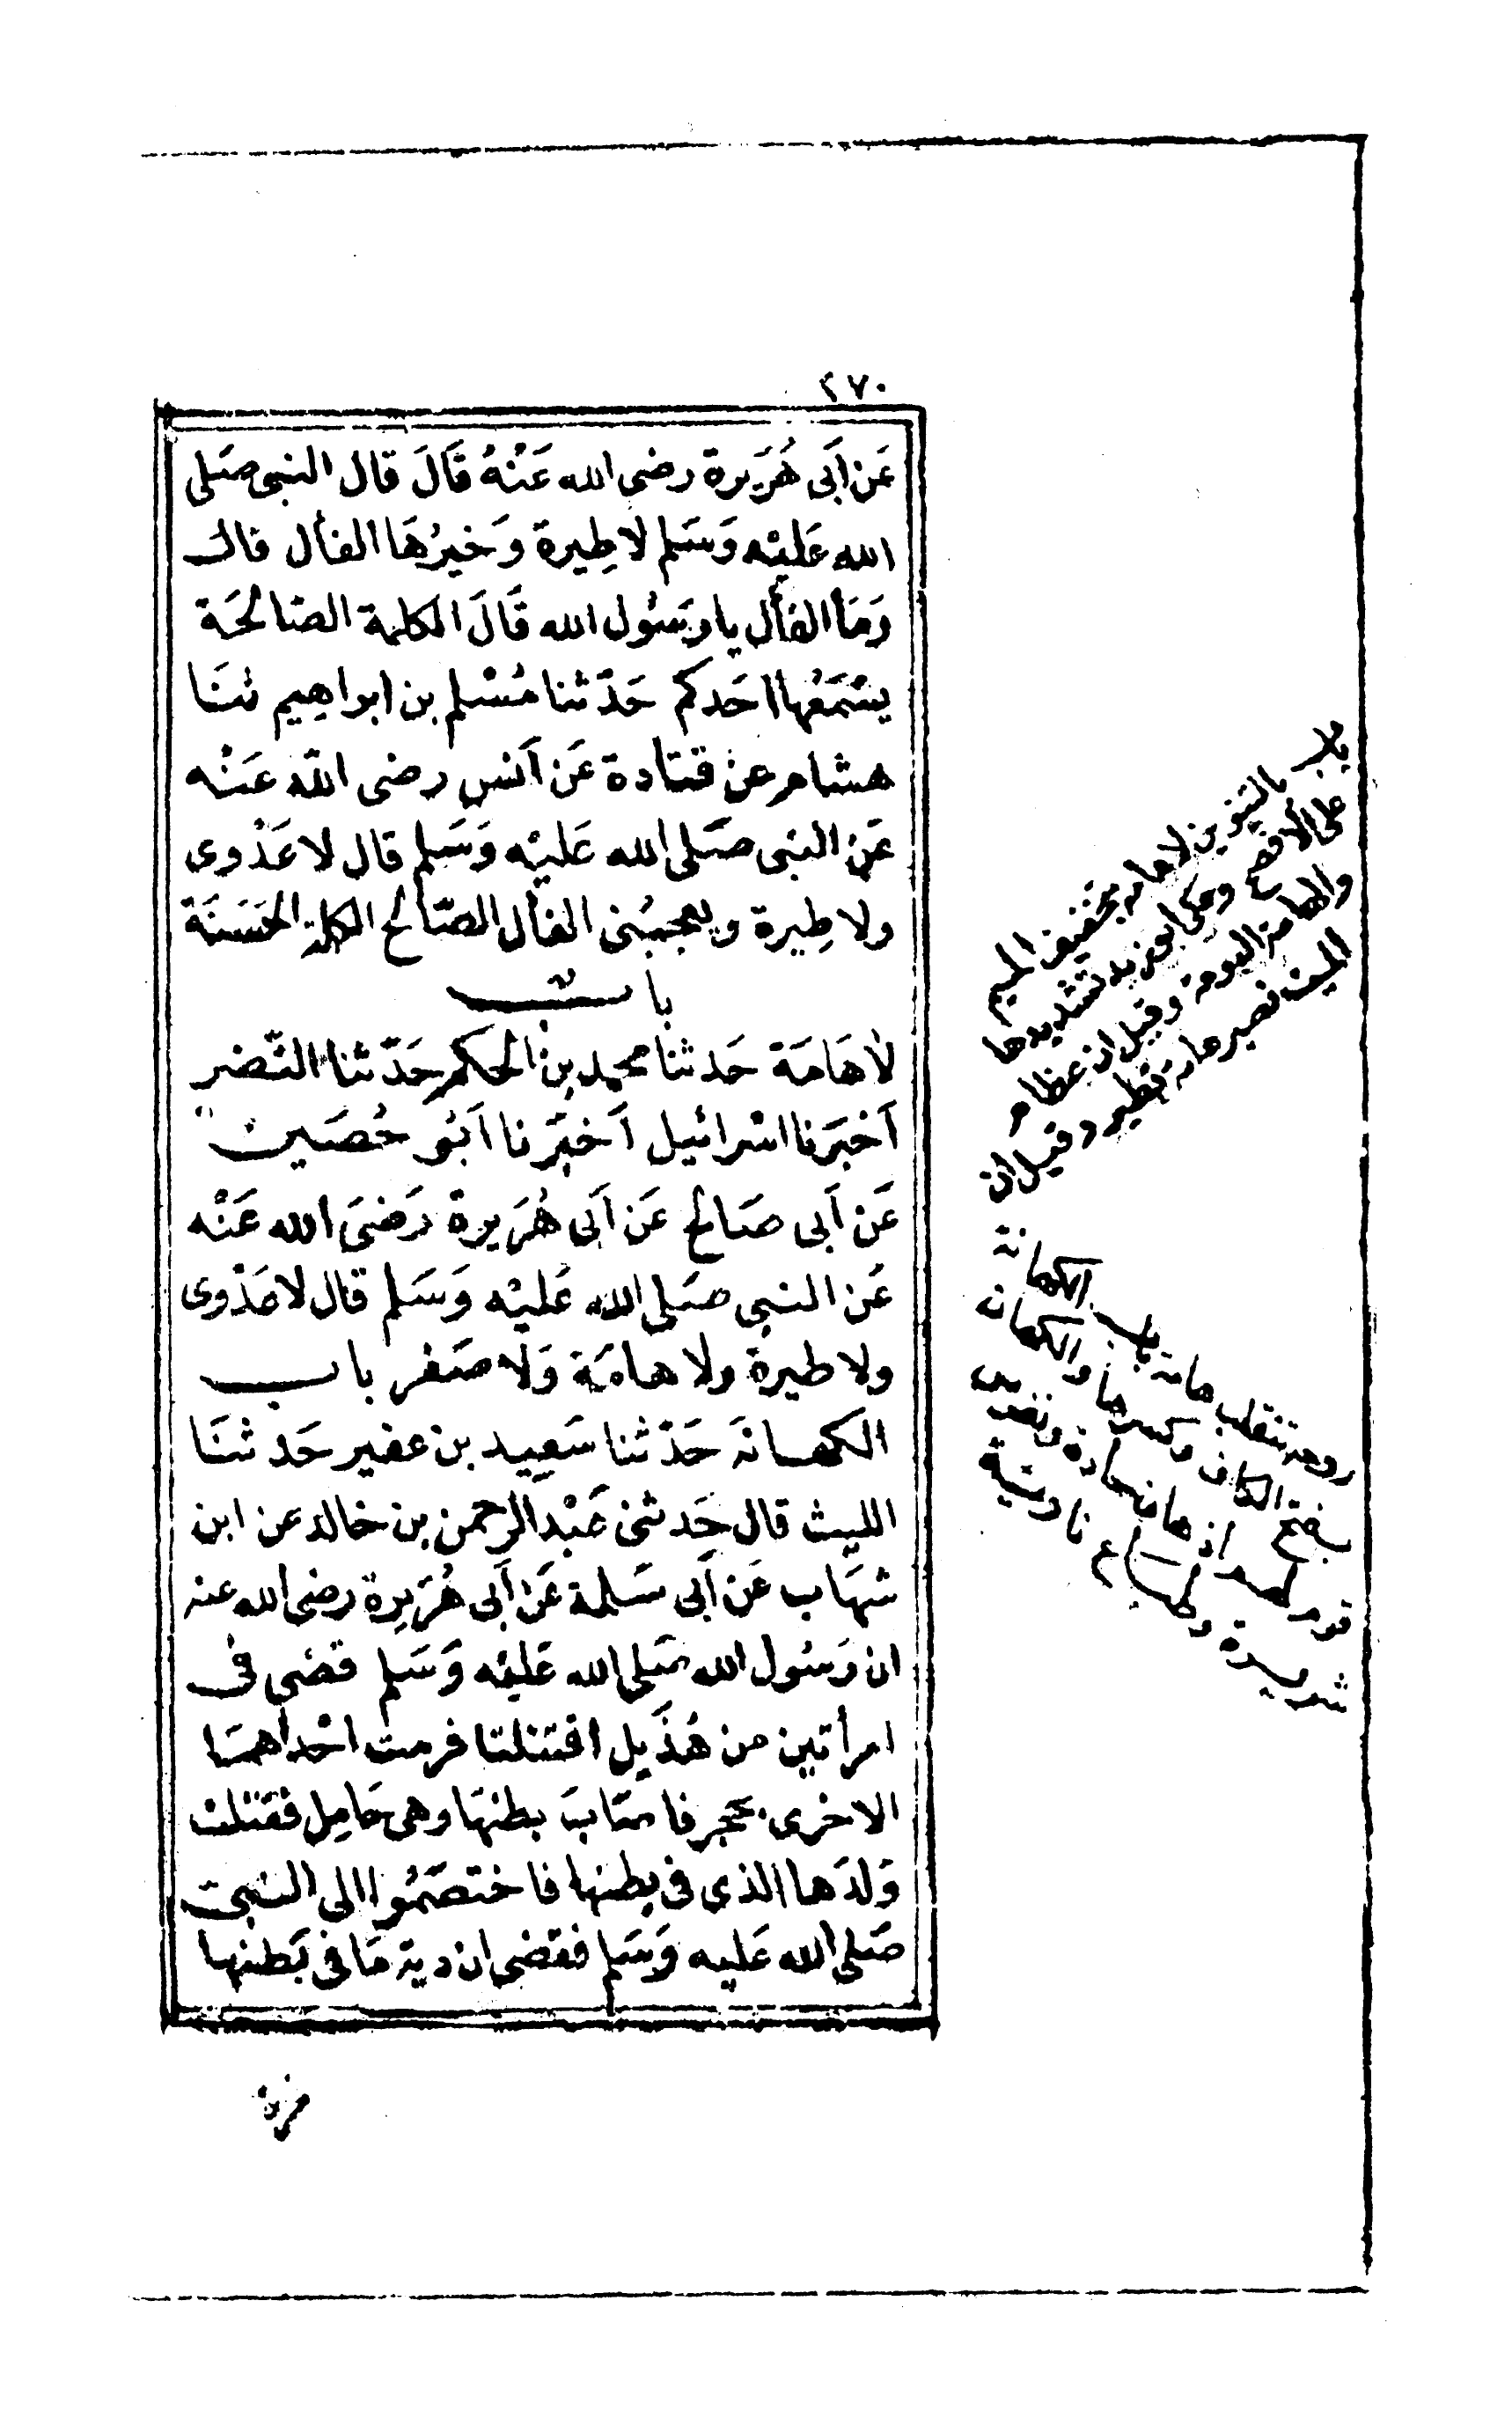 ٢٧٠
عَن اَبى هُرَيرة رضى الله عَنْهُ قَالَ قال النبى صَلى
الله عَليْه وَسَلم لا طِيرة وَخيرُهَا الفأل قال
وَمَا الفأل يا رسَُول الله قَالَ الكلمة الصّالحَة
يسْمَعُها احَدكم حَدّثنا مُسْلم بن ابراهِيم ثنَا
هشام عن قتادة عَن اَنس رضى الله عَنْه
عَن النبى صَلى الله عَليْه وَسَلم قال لا عَدْوى
ولا طِيرة ويعجبُنى الفأل الصّالح الكلمة الحَسَنَة
باب
لا هَامَة حَدثنا محمد بن الحكم حَدّثنا النّضر
اَخبَرنا اسْرائيل اَخبَرنا اَبُو حُصَين
عَن اَبى صَالح عَن اَبى هُرَيرة رَضىَ الله عَنْه
عَن النبى صَلى الله عَليْه وَسَلم قال لا عَدْوى
ولا طيرة ولا هامَة وَلا صَفر باب
الكهانَة حَدّثنا سَعِيد بن عفير حَدثنَا
الليث قال حَدثنى عَبْد الرحمن بن خالد عن ابن
شهَاب عَن اَبى سَلمة عَن اَبى هُرَيرة رضى الله عنه
ان رَسُول الله صَلى الله عَليْه وَسَلم قضى فى
امرأتين من هُذَيل اقتتلتا فرمت احْداهمَا
الاخرى بحجر فاصَابَ بطنهَا وهى حَامِل فقتلت
وَلدَها الذى فى بطنها فاختصَمُوا الى النبى
صَلى الله عَليه وَسَلم فقضى ان دية مَا فى بَطنها
غرة
باب بالتنوين لا هامة بتخفيف الميم
على الافصح وحكى ابو زيد تشديدها
والهامة البومة وقيل ان عظام
الميت تصير هامة فتطير وقيل ان
روحه تنقلب هامة باب الكهانة
بفتح الكاف وكسرها والكهانة